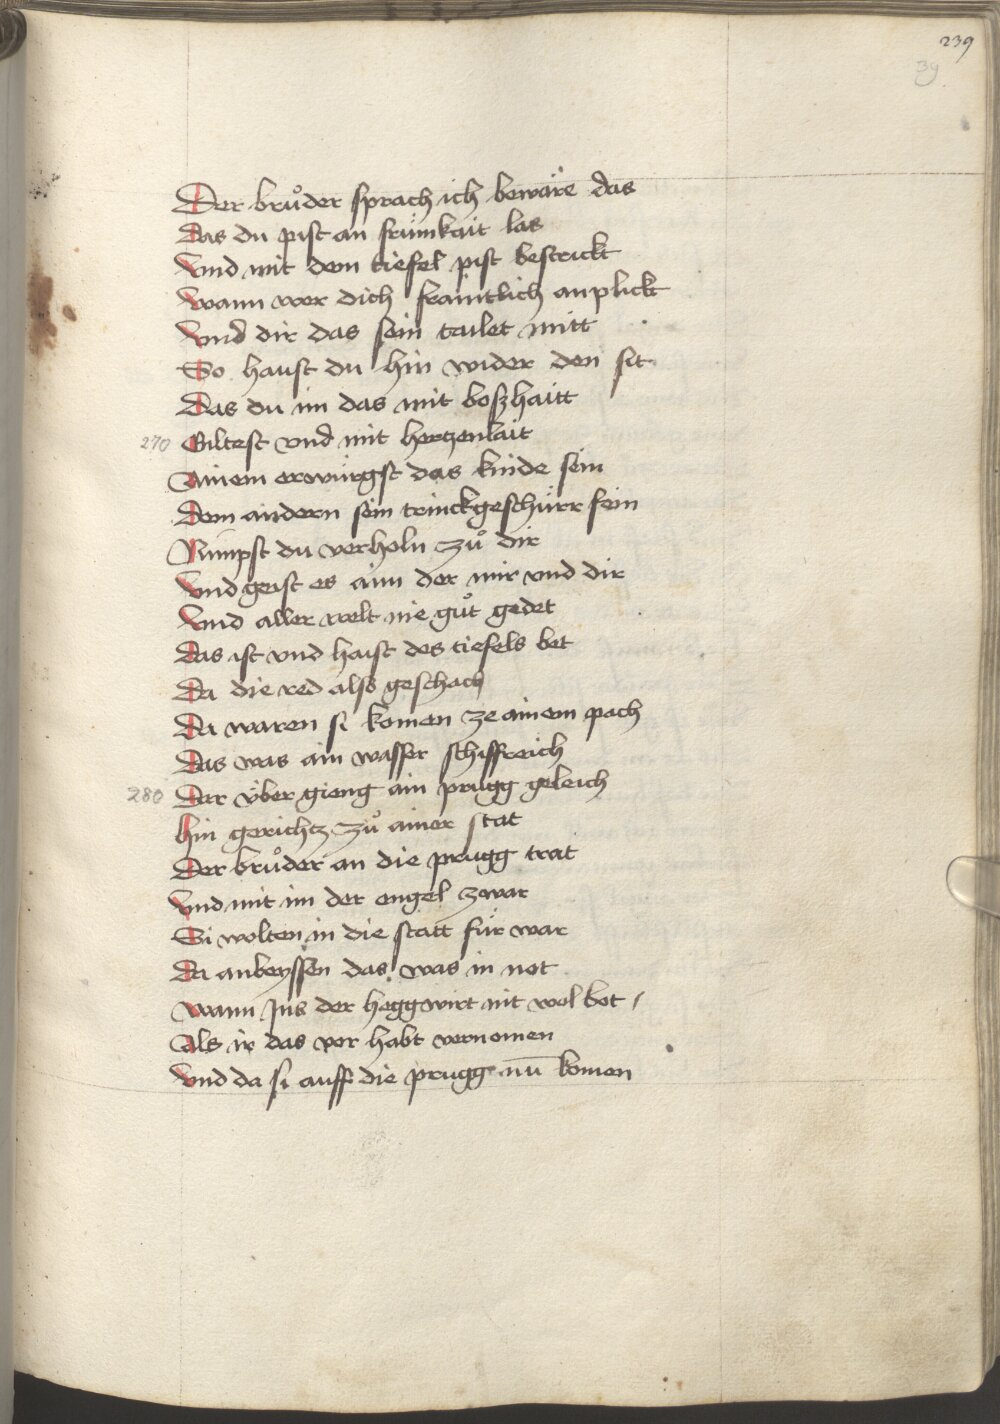 239
39
Der brůder sprach ich beware das
Das du pist an frümkait las
Vnd mit dem tiefel pist bestrickt
Wann wer dich framtlich anplickt
Vnd dir das sein tailet mitt
So haust du hin wider den sit
Das du im das mit boszhaitt
270 Giltest vnd mit hertzenlait
Ainem erwürgst das kinde sein
Dem andern sein trinckgeschürr fein
Nimpst du verholn zů dir
Vnd geist es aim der mir vnd dir
Vnd aller welt nie gůt gedet
Das ist vnd haist des tiefels bet
Da die red also geschach
Da waren si komen ze ainem pach
Das was ain wasser schiffreich
280 Dar über gieng ain prugg geleich
Hin gerichtz zů ainer stat
Der brůder an die prugg trat
Vnd mit im der engel zwar
Si wolten in die statt für war
Da anbeyssen das was in not
Wann Ins der heggwirt nit wol bot /
Als ir das vor habt vernomen
Vnd da si auff die prugg nū komen